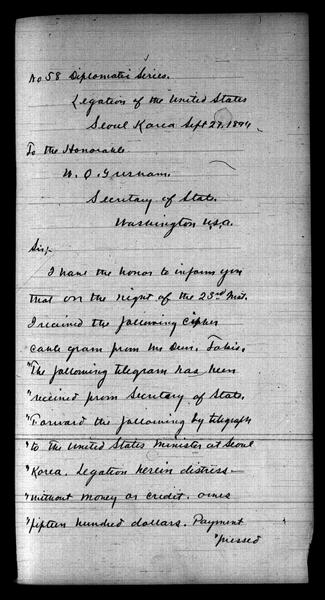 No 58 Diplomatic Series.
Legation of the United States
Seoul Korea Sept 27, 1894
To the Honorable
W. Q. Gresham.
Secretary of State.
Washington U.S.A.
Sir;-
I have the honor to inform you
that on the night of the 25th Inst.
I received the following cipher
cable gram from Mr Dun, Tokio.
"The following telegram has been
"received from Secretary of State.
"Forward the following by telegraph
"to the United States Minister at Seoul
"Korea. Legation herein distress—
"without money or credit. owes
"fifteen hundred dollars. Payment
"pressed